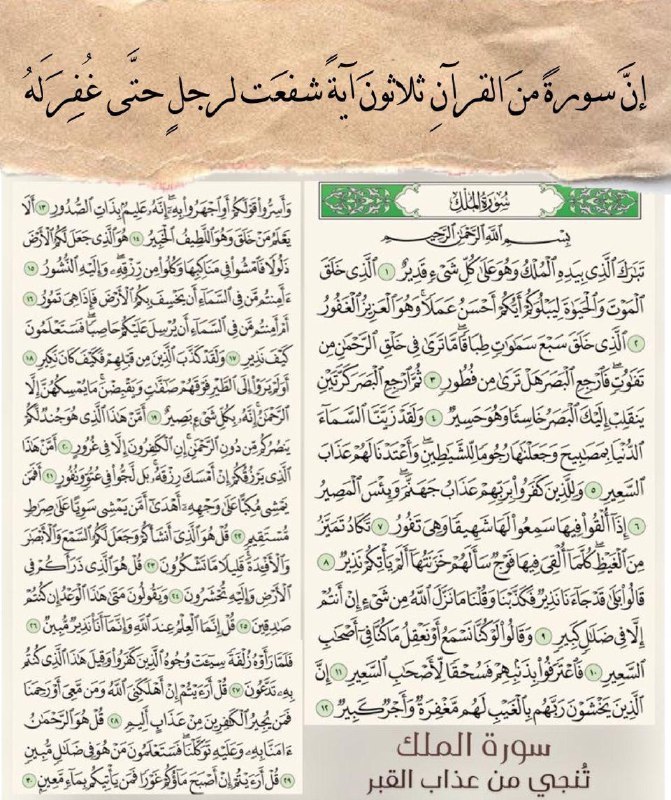 إنَّ سورةً منَ القرآنِ ثلاثونَ آيةً شفعَت لرجلٍ حتَّى غُفِرَ لَهُ
سُورَةُ المُلْكِ
بِسْمِ اللَّهِ الرَّحْمَٰنِ الرَّحِيمِ
تَبَٰرَكَ ٱلَّذِي بِيَدِهِ ٱلْمُلْكُ وَهُوَ عَلَىٰ كُلِّ شَيْءٍ قَدِيرٌ ١ ٱلَّذِي خَلَقَ
ٱلْمَوْتَ وَٱلْحَيَوٰةَ لِيَبْلُوَكُمْ أَيُّكُمْ أَحْسَنُ عَمَلًا وَهُوَ ٱلْعَزِيزُ ٱلْغَفُورُ
٢ ٱلَّذِي خَلَقَ سَبْعَ سَمَٰوَٰتٍ طِبَاقًا مَّا تَرَىٰ فِي خَلْقِ ٱلرَّحْمَٰنِ مِن
تَفَٰوُتٍ فَٱرْجِعِ ٱلْبَصَرَ هَلْ تَرَىٰ مِن فُطُورٍ ٣ ثُمَّ ٱرْجِعِ ٱلْبَصَرَ كَرَّتَيْنِ
يَنقَلِبْ إِلَيْكَ ٱلْبَصَرُ خَاسِئًا وَهُوَ حَسِيرٌ ٤ وَلَقَدْ زَيَّنَّا ٱلسَّمَآءَ
ٱلدُّنْيَا بِمَصَٰبِيحَ وَجَعَلْنَٰهَا رُجُومًا لِّلشَّيَٰطِينِ وَأَعْتَدْنَا لَهُمْ عَذَابَ
ٱلسَّعِيرِ ٥ وَلِلَّذِينَ كَفَرُوا۟ بِرَبِّهِمْ عَذَابُ جَهَنَّمَ وَبِئْسَ ٱلْمَصِيرُ
٦ إِذَآ أُلْقُوا۟ فِيهَا سَمِعُوا۟ لَهَا شَهِيقًا وَهِيَ تَفُورُ ٧ تَكَادُ تَمَيَّزُ
مِنَ ٱلْغَيْظِ كُلَّمَآ أُلْقِيَ فِيهَا فَوْجٌ سَأَلَهُمْ خَزَنَتُهَآ أَلَمْ يَأْتِكُمْ نَذِيرٌ ٨
قَالُوا۟ بَلَىٰ قَدْ جَآءَنَا نَذِيرٌ فَكَذَّبْنَا وَقُلْنَا مَا نَزَّلَ ٱللَّهُ مِن شَيْءٍ إِنْ أَنتُمْ
إِلَّا فِي ضَلَٰلٍ كَبِيرٍ ٩ وَقَالُوا۟ لَوْ كُنَّا نَسْمَعُ أَوْ نَعْقِلُ مَا كُنَّا فِيٓ أَصْحَٰبِ
ٱلسَّعِيرِ ١٠ فَٱعْتَرَفُوا۟ بِذَنۢبِهِمْ فَسُحْقًا لِّأَصْحَٰبِ ٱلسَّعِيرِ ١١ إِنَّ
ٱلَّذِينَ يَخْشَوْنَ رَبَّهُم بِٱلْغَيْبِ لَهُم مَّغْفِرَةٌ وَأَجْرٌ كَبِيرٌ ١٢
سورة الملك
تُنجي من عذاب القبر
وَأَسِرُّوا۟ قَوْلَكُمْ أَوِ ٱجْهَرُوا۟ بِهِۦٓ إِنَّهُۥ عَلِيمٌۢ بِذَاتِ ٱلصُّدُورِ ١٣ أَلَا
يَعْلَمُ مَنْ خَلَقَ وَهُوَ ٱللَّطِيفُ ٱلْخَبِيرُ ١٤ هُوَ ٱلَّذِي جَعَلَ لَكُمُ ٱلْأَرْضَ
ذَلُولًا فَٱمْشُوا۟ فِي مَنَاكِبِهَا وَكُلُوا۟ مِن رِّزْقِهِۦ وَإِلَيْهِ ٱلنُّشُورُ ١٥
ءَأَمِنتُم مَّن فِي ٱلسَّمَآءِ أَن يَخْسِفَ بِكُمُ ٱلْأَرْضَ فَإِذَا هِيَ تَمُورُ ١٦
أَمْ أَمِنتُم مَّن فِي ٱلسَّمَآءِ أَن يُرْسِلَ عَلَيْكُمْ حَاصِبًا فَسَتَعْلَمُونَ
كَيْفَ نَذِيرِ ١٧ وَلَقَدْ كَذَّبَ ٱلَّذِينَ مِن قَبْلِهِمْ فَكَيْفَ كَانَ نَكِيرِ ١٨
أَوَلَمْ يَرَوْا۟ إِلَى ٱلطَّيْرِ فَوْقَهُمْ صَٰٓفَّٰتٍ وَيَقْبِضْنَ مَا يُمْسِكُهُنَّ إِلَّا
ٱلرَّحْمَٰنُ إِنَّهُۥ بِكُلِّ شَيْءٍۭ بَصِيرٌ ١٩ أَمَّنْ هَٰذَا ٱلَّذِي هُوَ جُندٌ لَّكُمْ
يَنصُرُكُم مِّن دُونِ ٱلرَّحْمَٰنِ إِنِ ٱلْكَٰفِرُونَ إِلَّا فِي غُرُورٍ ٢٠ أَمَّنْ هَٰذَا
ٱلَّذِي يَرْزُقُكُمْ إِنْ أَمْسَكَ رِزْقَهُۥ بَل لَّجُّوا۟ فِي عُتُوٍّ وَنُفُورٍ ٢١ أَفَمَن
يَمْشِي مُكِبًّا عَلَىٰ وَجْهِهِۦٓ أَهْدَىٰٓ أَمَّن يَمْشِي سَوِيًّا عَلَىٰ صِرَٰطٍ
مُّسْتَقِيمٍ ٢٢ قُلْ هُوَ ٱلَّذِيٓ أَنشَأَكُمْ وَجَعَلَ لَكُمُ ٱلسَّمْعَ وَٱلْأَبْصَٰرَ
وَٱلْأَفْـِٔدَةَ قَلِيلًا مَّا تَشْكُرُونَ ٢٣ قُلْ هُوَ ٱلَّذِي ذَرَأَكُمْ فِي
ٱلْأَرْضِ وَإِلَيْهِ تُحْشَرُونَ ٢٤ وَيَقُولُونَ مَتَىٰ هَٰذَا ٱلْوَعْدُ إِن كُنتُمْ
صَٰدِقِينَ ٢٥ قُلْ إِنَّمَا ٱلْعِلْمُ عِندَ ٱللَّهِ وَإِنَّمَآ أَنَا۠ نَذِيرٌ مُّبِينٌ ٢٦
فَلَمَّا رَأَوْهُ زُلْفَةً سِيٓـَٔتْ وُجُوهُ ٱلَّذِينَ كَفَرُوا۟ وَقِيلَ هَٰذَا ٱلَّذِي كُنتُم
بِهِۦ تَدَّعُونَ ٢٧ قُلْ أَرَءَيْتُمْ إِنْ أَهْلَكَنِيَ ٱللَّهُ وَمَن مَّعِيَ أَوْ رَحِمَنَا
فَمَن يُجِيرُ ٱلْكَٰفِرِينَ مِنْ عَذَابٍ أَلِيمٍ ٢٨ قُلْ هُوَ ٱلرَّحْمَٰنُ
ءَامَنَّا بِهِۦ وَعَلَيْهِ تَوَكَّلْنَا فَسَتَعْلَمُونَ مَنْ هُوَ فِي ضَلَٰلٍ مُّبِينٍ
٢٩ قُلْ أَرَءَيْتُمْ إِنْ أَصْبَحَ مَآؤُكُمْ غَوْرًا فَمَن يَأْتِيكُم بِمَآءٍ مَّعِينٍۭ ٣٠